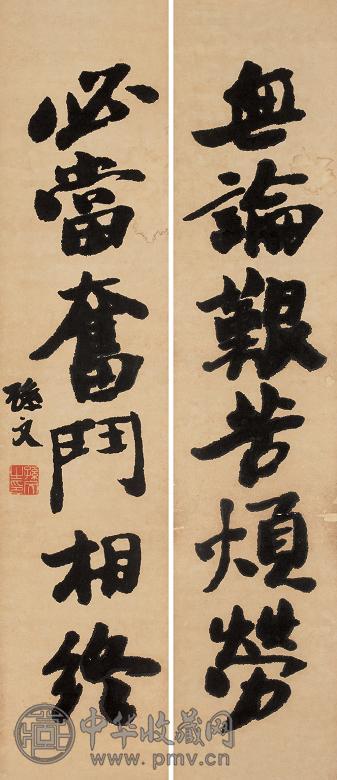 無論艱苦煩勞
必當奮鬥相終
孫文
孫文之印
中华收藏网
www.pmv.cn